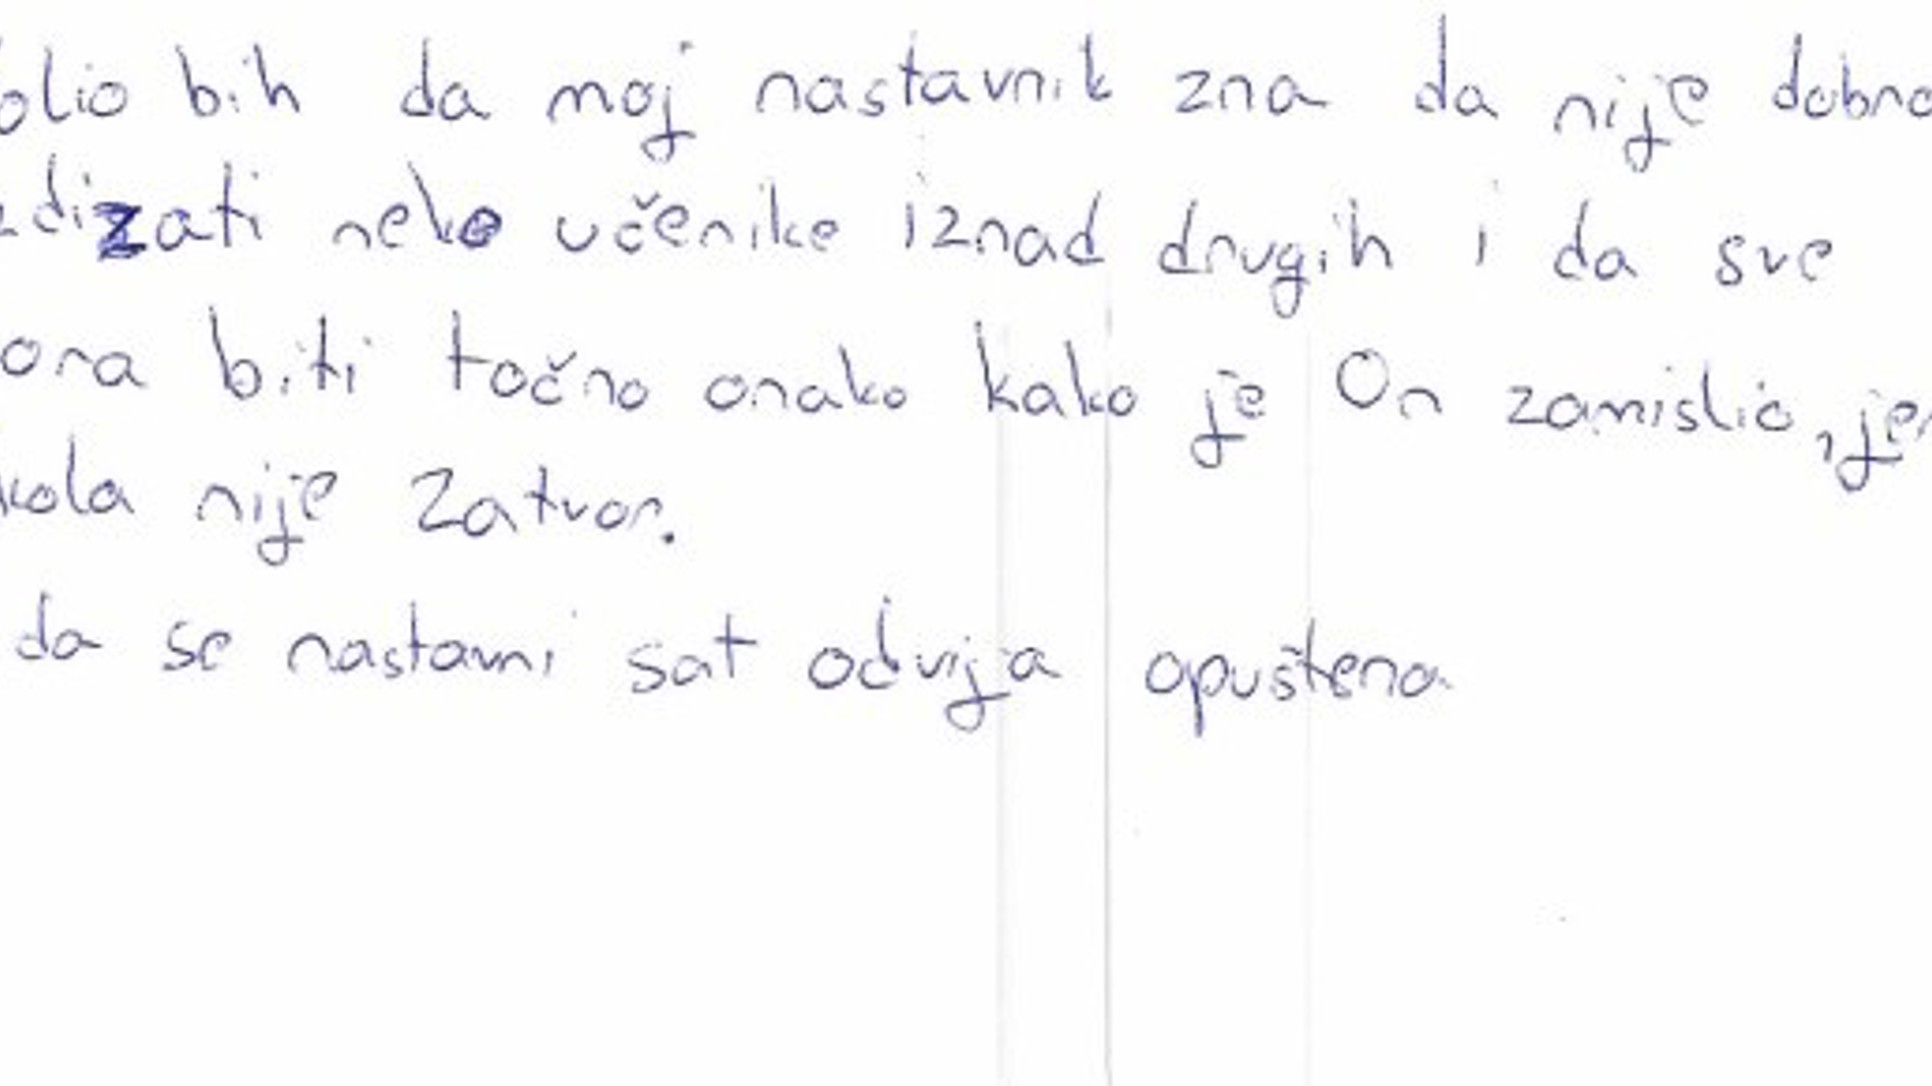 olio bih da moj nastavnik zna da nije dobro
dizati neke učenike iznad drugih i da sve
ora biti točno onako kako je On zamislio, jer
kola nije zatvor.
da se nastavni sat odvija opušteno